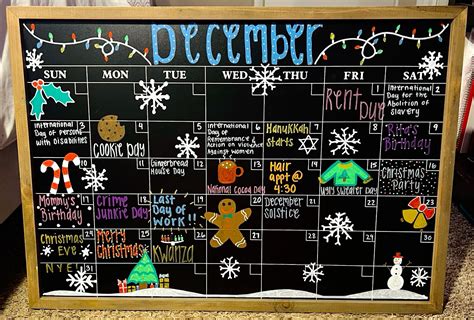 December
SUN MON TUE WED THU FRI SAT
1
Rent
Due
2
International
Day for the
Abolition of
slavery
3
International
Day of Persons
with disabilities
4
Cookie Day
5
6
International
Day of
Remembrance
Action on Violence
Against Women
7
Hanukkah
starts
8
9
Birthday
10
11
12
Gingerbread
House Day
13
National Cocoa Day
14
Hair
appt @
4:30
15
Ugly Sweater Day
16
Christmas
Party
17
Mommy's
Birthday
18
Crime
Junkie Day
19
Last
Day of
work!!
20
21
December
Solstice
22
23
24
Christmas
Eve
31
NYE
25
Merry
Christmas
26
Kwanza
27
28
29
30